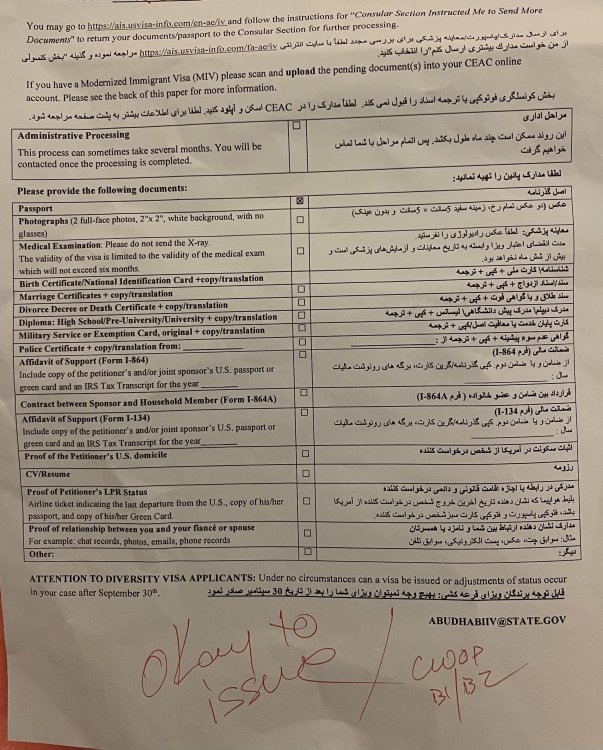 You may go to https://ais.usvisa-info.com/en-ae/iv and follow the instructions for "Consular Section Instructed Me to Send More
Documents" to return your documents/passport to the Consular Section for further processing.
برای ارسال مدارک/پاسپورت/معاینه پزشکی برای بررسی مجدد لطفاً با سایت انترنتی https://ais.usvisa-info.com/fa-ae/iv مراجعه نموده و گذینه "بخش کنسولی
از من خواست مدارک بیشتری ارسال کنم"را انتخاب کنید.
If you have a Modernized Immigrant Visa (MIV) please scan and upload the pending document(s) into your CEAC online
account. Please see the back of this paper for more information.
بخش کونسلگری فوتوکپی یا ترجمه اسناد را قبول نمی کند. لطفاً مدارک را در CEAC اسکن و آپلود کنید. لطفا برای اطلاعات بیشتر به پشت صفحه مراجعه شود.
Administrative Processing
This process can sometimes take several months. You will be
contacted once the processing is completed.
مراحل اداری
این روند ممکن است چند ماه طول بکشد. پس اتمام مراحل با شما تماس
خواهیم گرفت
Please provide the following documents:
لطفا مدارک پائین را تهیه نمائید:
Passport
اصل گذرنامه
Photographs (2 full-face photos, 2"x 2", white background, with no
glasses)
عکس (دو عکس تمام رخ، زمینه سفید 5سانت × 5سانت و بدون عینک)
Medical Examination: Please do not send the X-ray.
The validity of the visa is limited to the validity of the medical exam
which will not exceed six months.
معاینه پزشکی: لطفأ عکس رادیولوژی را نفرستید.
مدت انقضای اعتبار ویزا وابسته به تاریخ معاینات و آزمایش‌های پزشکی است و
بیش از شش ماه نخواهد بود.
Birth Certificate/National Identification Card +copy/translation
شناسنامه/ کارت ملی + کپی + ترجمه
Marriage Certificates + copy/translation
سند/اسناد ازدواج + کپی + ترجمه
Divorce Decree or Death Certificate + copy/translation
سند طلاق و یا گواهی فوت + کپی + ترجمه
Diploma: High School/Pre-University/University + copy/translation
مدرک دیپلم/ مدرک پیش دانشگاهی/ لیسانس + کپی + ترجمه
Military Service or Exemption Card, original + copy/translation
کارت پایان خدمت یا معافیت اصل/کپی + ترجمه
Police Certificate + copy/translation from:
گواهی عدم سوء پیشینه + کپی + ترجمه از :
Affidavit of Support (Form I-864)
Include copy of the petitioner's and/or joint sponsor's U.S. passport or
green card and an IRS Tax Transcript for the year
ضمانت مالی (فرم I-864)
از ضامن و یا ضامن دوم. کپی گذرنامه/گرین کارت، برگه های رونوشت مالیات
سال :
Contract between Sponsor and Household Member (Form I-864A)
قرارداد بین ضامن و عضو خانواده ( فرم I-864A)
Affidavit of Support (Form I-134)
Include copy of the petitioner's and/or joint sponsor's U.S. passport or
green card and an IRS Tax Transcript for the year
ضمانت مالی (فرم I-134)
از ضامن و یا ضامن دوم. کپی گذرنامه/گرین کارت، برگه های رونوشت مالیات
سال :
Proof of the Petitioner's U.S. domicile
اثبات سکونت در آمریکا از شخص درخواست کننده
CV/Resume
رزومه
Proof of Petitioner's LPR Status
Airline ticket indicating the last departure from the U.S., copy of his/her
passport, and copy of his/her Green Card.
مدرکی در رابطه با اجازه اقامت قانونی و دائمی درخواست کننده
بلیط هواپیما که نشان دهنده تاریخ آخرین خروج شخص درخواست کننده از آمریکا
باشد، فتوکپی پاسپورت و فتوکپی کارت سبزشخص درخواست کننده.
Proof of relationship between you and your fiancé or spouse
For example: chat records, photos, emails, phone records
مدارک نشان دهنده ارتباط بین شما و نامزد یا همسرتان
مثال: سوابق چت، عکس، پست الکترونیکی، سوابق تلفن
Other:
دیگر:
ATTENTION TO DIVERSITY VISA APPLICANTS: Under no circumstances can a visa be issued or adjustments of status occur
in your case after September 30th.
قابل توجه برندگان ویزای قرعه کشی: بهیچ وجه نمیتوان ویزای شما را بعد از تاریخ 30 سپتامبر صادر نمود
ABUDHABIIV@STATE.GOV
Okay to
issue
B1/B2